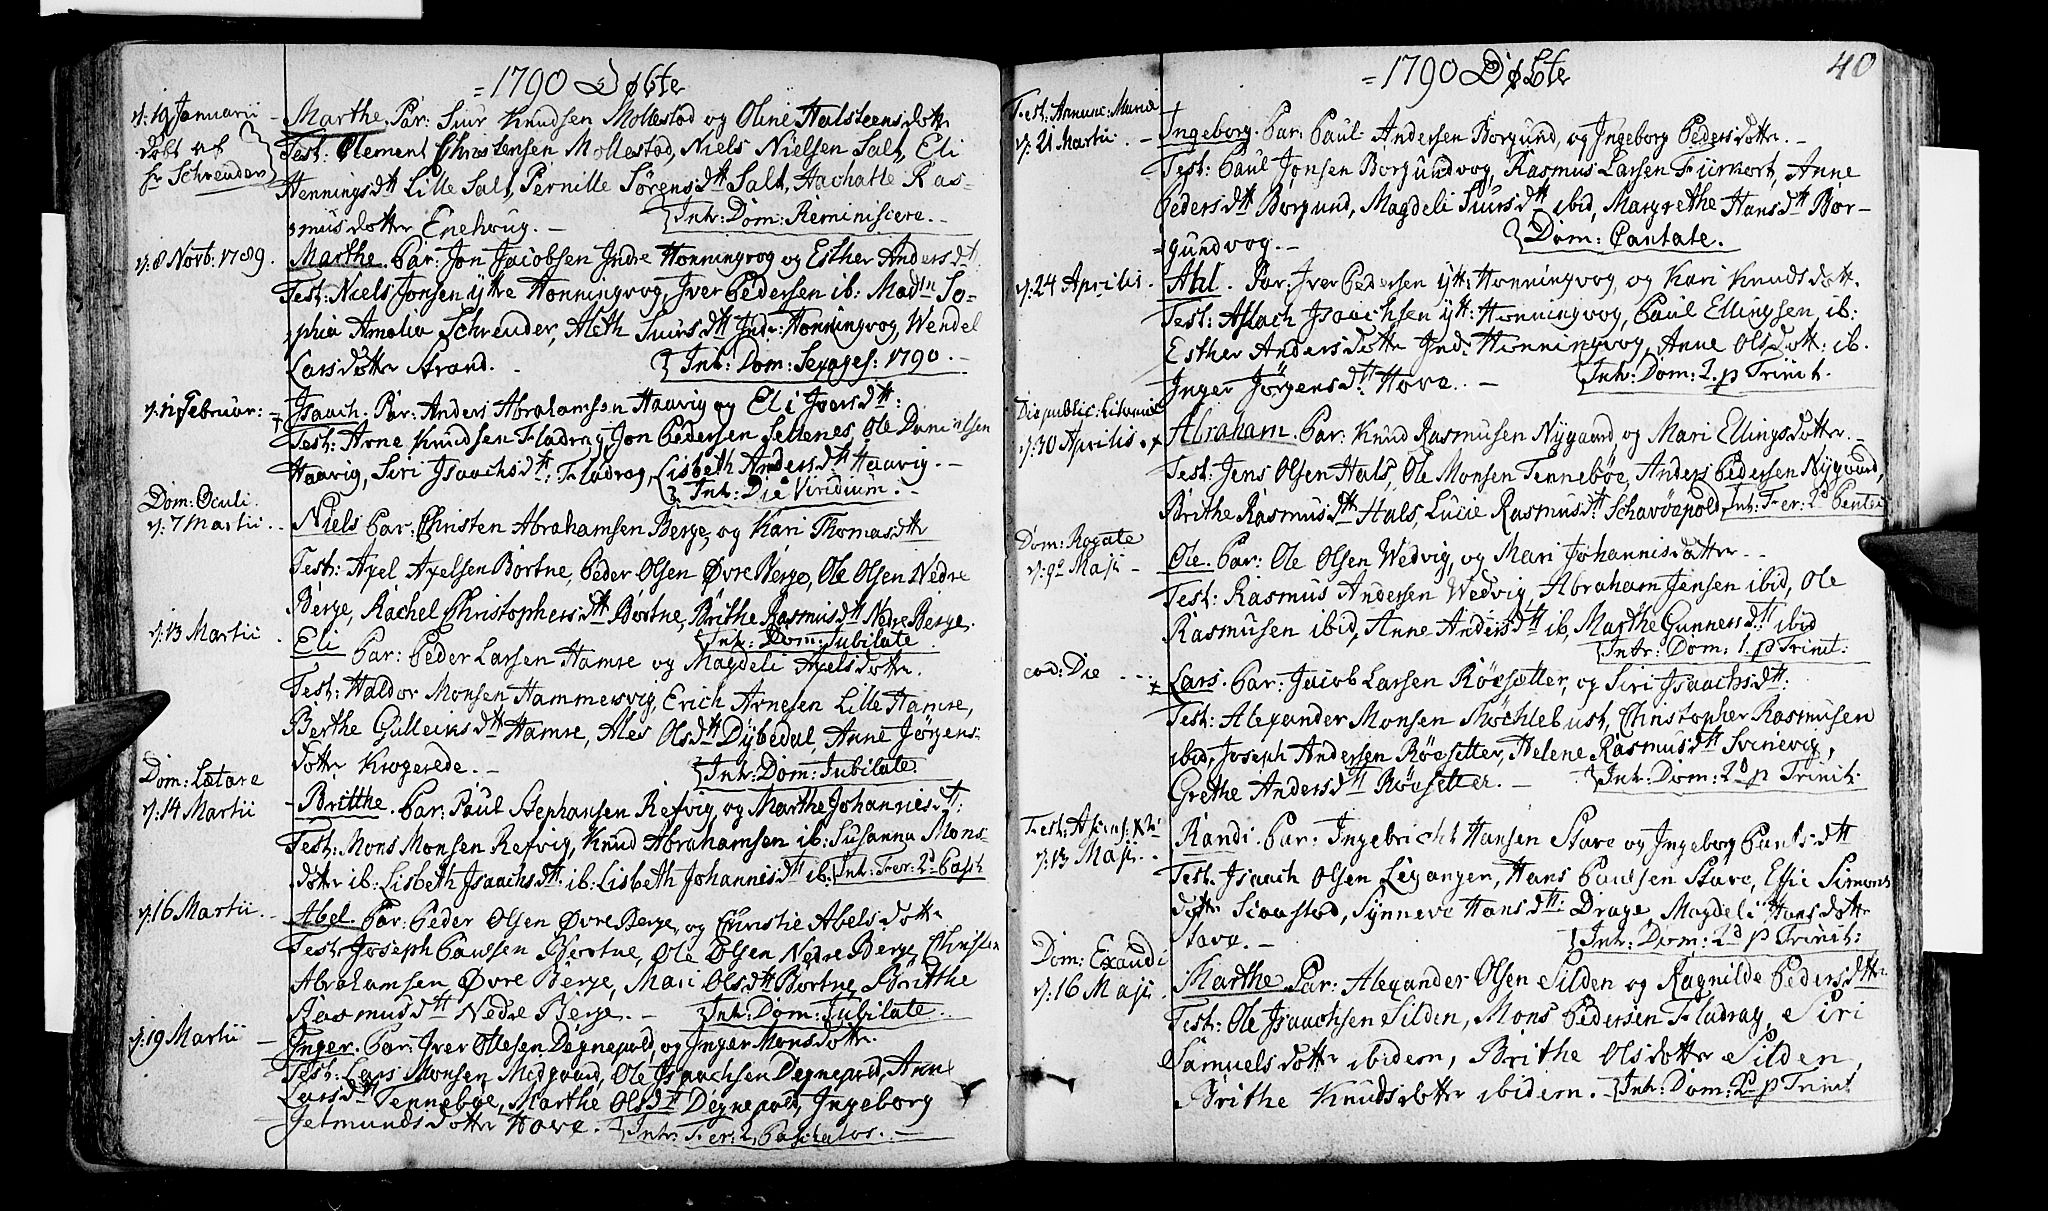 =1790 Døbte
d: 19 Januarii
døbt af
hr Schreuder
Marthe. Par: Siur Knudsen Mollestad og Oline Halsteensdotter
Test: Clement Christensen Mollestad, Niels Nielsen Salt, Eli
Henningsdtt Lille Salt, Pernille Sörensdtt Salt, Hachatte Ras-
musdotter Enehoug. - Intr: Dom: Reminiscere. -
d: 8 Novb. 1789.
Marthe. Par: Jon Jacobsen Indre Honningvog og Esther Andersdtt:
Test: Niels Jonsen ytre Honningvog, Iver Pedersen ib: Madm So-
phia Amalia Schreuder, Aleth Siursdtt Indr: Honningvog, Wendel
Larsdotter Strand. - Intr: Dom: Sexages: 1790. -
d: 11 Februar: -
Isaach. Par: Anders Abrahamsen Haavig og Eli Joersdtt:
Test: Arne Knudsen Fladrag, Jon Pedersen Sellenes, Ole Danielsen
Haavig, Siri Isaachsdtt: Fladrag, Lisbeth Andersdtt Haavig. -
Intr: Die Viridium. -
Dom: Oculi.
d: 7 Martii. -
Niels Par: Christen Abrahamsen Berge, og Kari Thomasdtr
Test: Axel Axelsen Børtne, Peder Olsen Øvre Berge, Ole Olsen Nedre
Berge, Rachel Christophersdtt Børtne, Brithe Rasmusdtt Nedre Berge.
Intr: Dom: Jubilate.
d: 13 Martii.
Eli Par: Peder Larsen Hamre og Magdeli Axelsdotter.
Test: Haldor Monsen Hammersvig, Erich Arnesen Lille Hamre,
Berthe Gullecksdtt Hamre, Ales Olsdtt Dybedal, Anne Jørgens-
dotter Krogerede. - Intr: Dom: Jubilate.
Dom: Lætare
d: 14 Martii
Britthe. Par: Paul Stephansen Refvig, og Marthe Johannisdtt:
Test: Mons Monsen Refvig, Knud Abrahamsen ib: Susanna Mons-
dotter ib: Lisbeth Isaachsdtt: ib: Lisbeth Johannisdtt ib: Intr: Fer: 2d Pasch
d: 16 Martii. -
Abel. Par: Peder Olsen Øvre Berge, og Christie Abelsdotter
Test: Joseph Paulsen Børtne, Ole Olsen Nedre Berge, Christen
Abrahamsen Øvre Berge, Mari Olsdtt Børtne, Britthe
Rasmusdtt Nedre Berge. - Intr: Dom: Jubilate.
d: 19 Martii -
Inger. Par: Iver Ottesen Degnepold, og Inger Monsdotter.
Test: Lars Monsen Medgaard, Ole Isaachsen Degnepold, Anne
Larsdtt Tennebøe, Marthe Olsdtt Degnepold, Ingeborg
Jetmundsdotter Hove. Intr: Fer: 2 Paschatos. -
=1790 Døbte
40
Fest: Annunc: Mariæ
d: 21 Martii. -
Ingeborg. Par: Paul Andersen Borgund, og Ingeborg Pedersdotter. -
Test: Paul Jonsen Borgundvog, Rasmus Larsen Fürkort, Anne
Pedersdtt Borgund, Magdeli Siursdtt ibid, Margrethe Hansdtt Bor-
gundvog. - Dom: Cantate.
d: 24 Aprilis.
Ahl. Par: Iver Pedersen ytt: Honningvog, og Kari Knudsdott.
Test: Aslach Isaachsen ytt: Honningvog, Paul Ellingsen, ib:
Esther Andersdotter Indr: Honningvog, Anne Olsdott: ib.
Inger Jörgensdtt Hove. - Intr: Dom: 2. p Trinit.
Die public: Litaniæ
d: 30 Aprilis. +
Abraham. Par: Knud Rasmusen Nygaard og Mari Ellingsdotter. -
Test: Jens Olsen Hals, Ole Monsen Tennebøe, Anders Pedersen Nygaard,
Brithe Rasmusdtt Hals, Lucie Rasmusdtt Schavøepold, Intr: Fer: 2d Pentec
Dom: Rogate
d: 9de Maji -
Ole. Par: Ole Olsen Wedvig, og Mari Johannisdatter. -
Test: Rasmus Andersen Wedvig, Abraham Jensen ibid, Ole
Rasmusen ibid, Anne Andersdtt ib, Marthe Gunnersdtt: ibid
Intr: Dom: 1. p Trinit:
eod: Die
Lars. Par: Jacob Larsen Röesetter, og Siri Isaachsdtt:
Test: Alexander Monsen Möchlebust, Christopher Rasmusen
ibid, Joseph Andersen Röesetter, Helene Rasmusdtt Svinevig,
Grethe Andersdtt Röesetter. - Intr: Dom: 2d p Trinit.
Fest: Ascens: Xti
d: 13 Maji. -
Randi. Par: Ingebricht Hansen Stave og Ingeborg Paulsdtt
Test. Isaach Olsen Leganger, Hans Paulsen Stave, Elsie Simons
dotter Scaastad, Synneve Hansdtt: Drage, Magdeli Hansdotter
Stave. - Intr: Dom: 2d p Trinit:
Dom: Exaudi
d: 16 Maji.
Marthe. Par: Alexander Olsen Silden og Ragnilde Pedersdotter
Test: Ole Isaachsen Silden, Mons Pedersen Fladrag, Siri
Samuelsdotter ibidem, Brithe Olsdotter Silden,
Brithe Knudsdotter ibidem. - Intr: Dom: 2d p Trinit